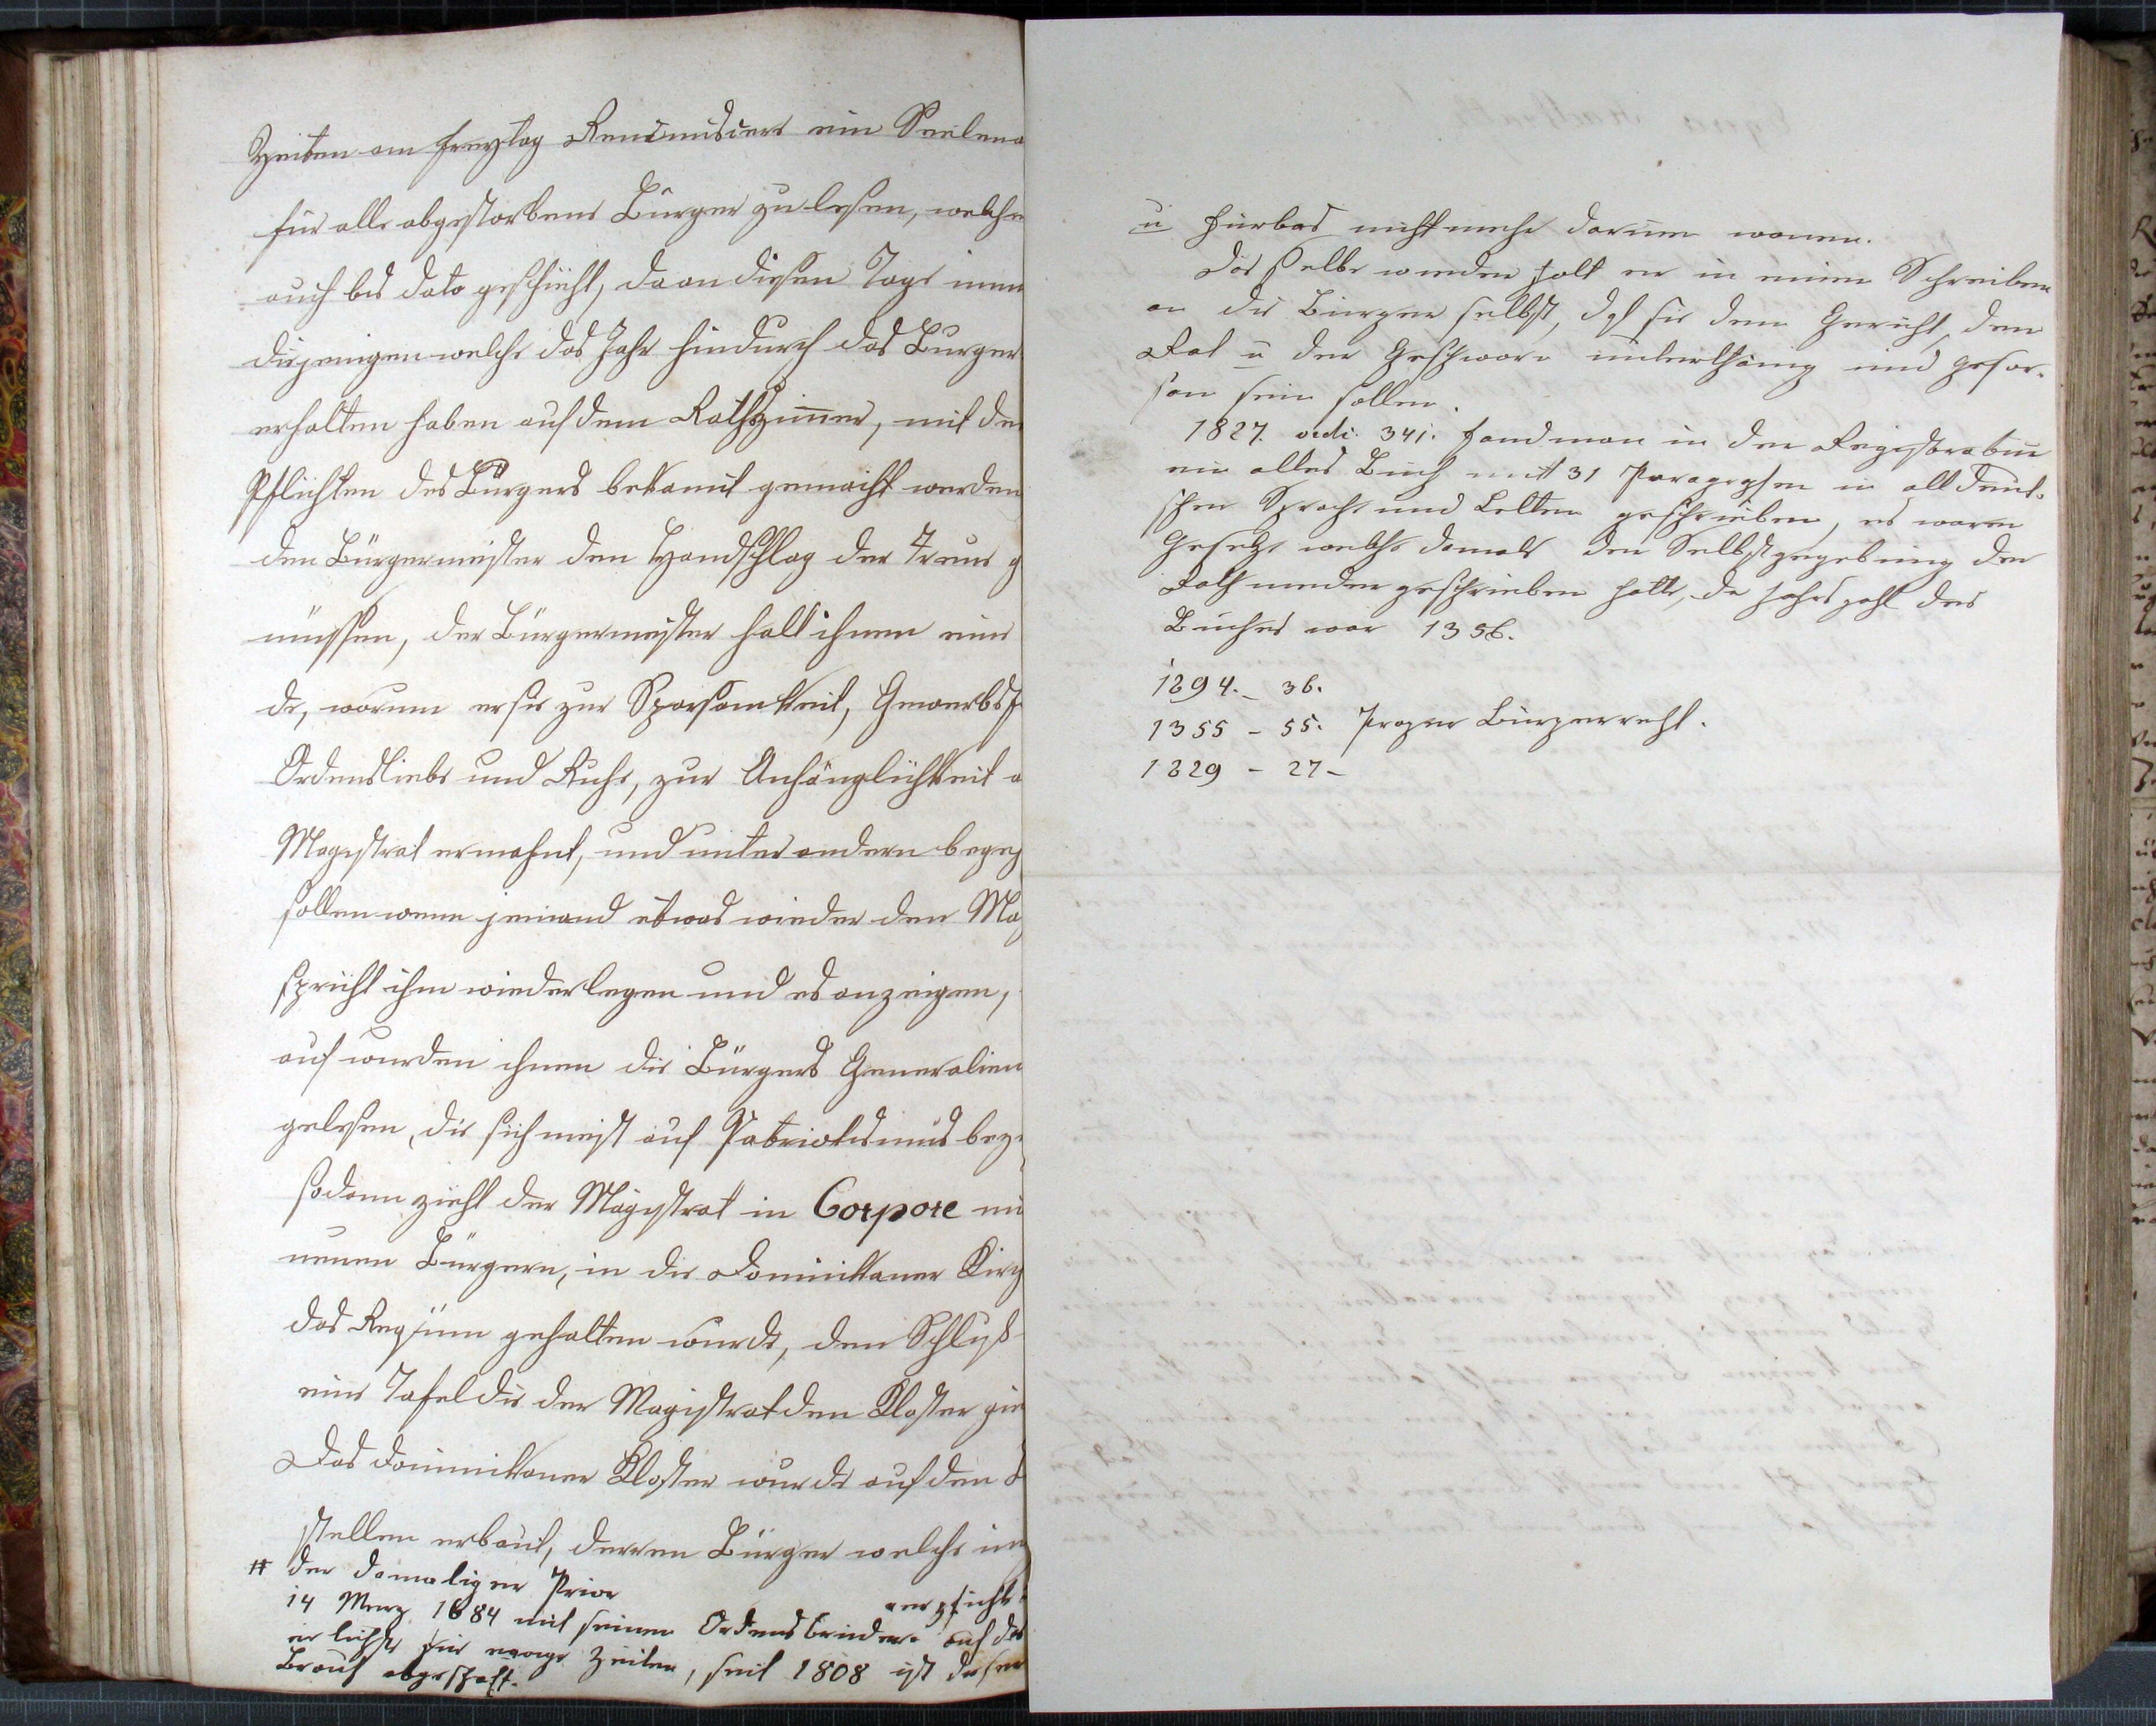 Zeiten am Freytag Reminiscere ein Seelena
für alle abgestorbene Bürger zu lesen, welche
auch bis dato geschieht, da an diesen Tage imm
diejenigen welche das Jahr hindurch das Burger
erhalten haben auf dem Rathszimer, mit de
Pflichten des Bürgers bekannt gemacht werden
den Bürgermeister den Handschlag der Treue g
müssen, der Bürgermeister halt ihnen eine
de, worinn er sie zur Sparsamkeit, Gewerbsf
Ordensliebe und Ruhe, zur Anhänglichkeit a
Magistrat ermahnt, und unter andern begeg
sollen wenn jemand etwas wieder den Mag
spricht ihm wiederlegen und es anzeigen,
auf wurden ihnen die Bürgers Generalien
gelesen, die sich meist auf Patriotismus bezi
sodann zieht der Magistrat in Corpore mi
neuen Bürgern, in die Dominikaner Kirch
das Requium gehalten wurde, den Schluß
eine Tafel die der Magistrat den Kloster gie
Das Dominikaner Kloster wurde auf den
stellen erbaut, derren Bürger welche im
# der damaliger Prior verpflicht
14 Merz 1684 mit seinen Ordensbrüder auf das
für ewige Zeiten, seit 1808 ist dieser
Brauch abgeschaft.
u fürbas nicht mehr darum wonen.
Das selbe wieder holt er in einem Schreiben
an die Bürger selbst, daß sie dem Gericht, dem
Rat u der Geschworn unterthänig und gehor-
sam sein sollen.
1827. 341. fand man in der Registratur
ein altes Buch mit 31 Paragrafen in altdeut-
scher Sprache und Lettern geschrieben, es waren
Gesetze welche damals der Selbstgegebung der
Rath nieder geschrieben hatte, die Jahrszahl des
Buches war 1356.
1294. - 36.
1355 - 55. Prager Bürgerrecht.
1329 - 27 -